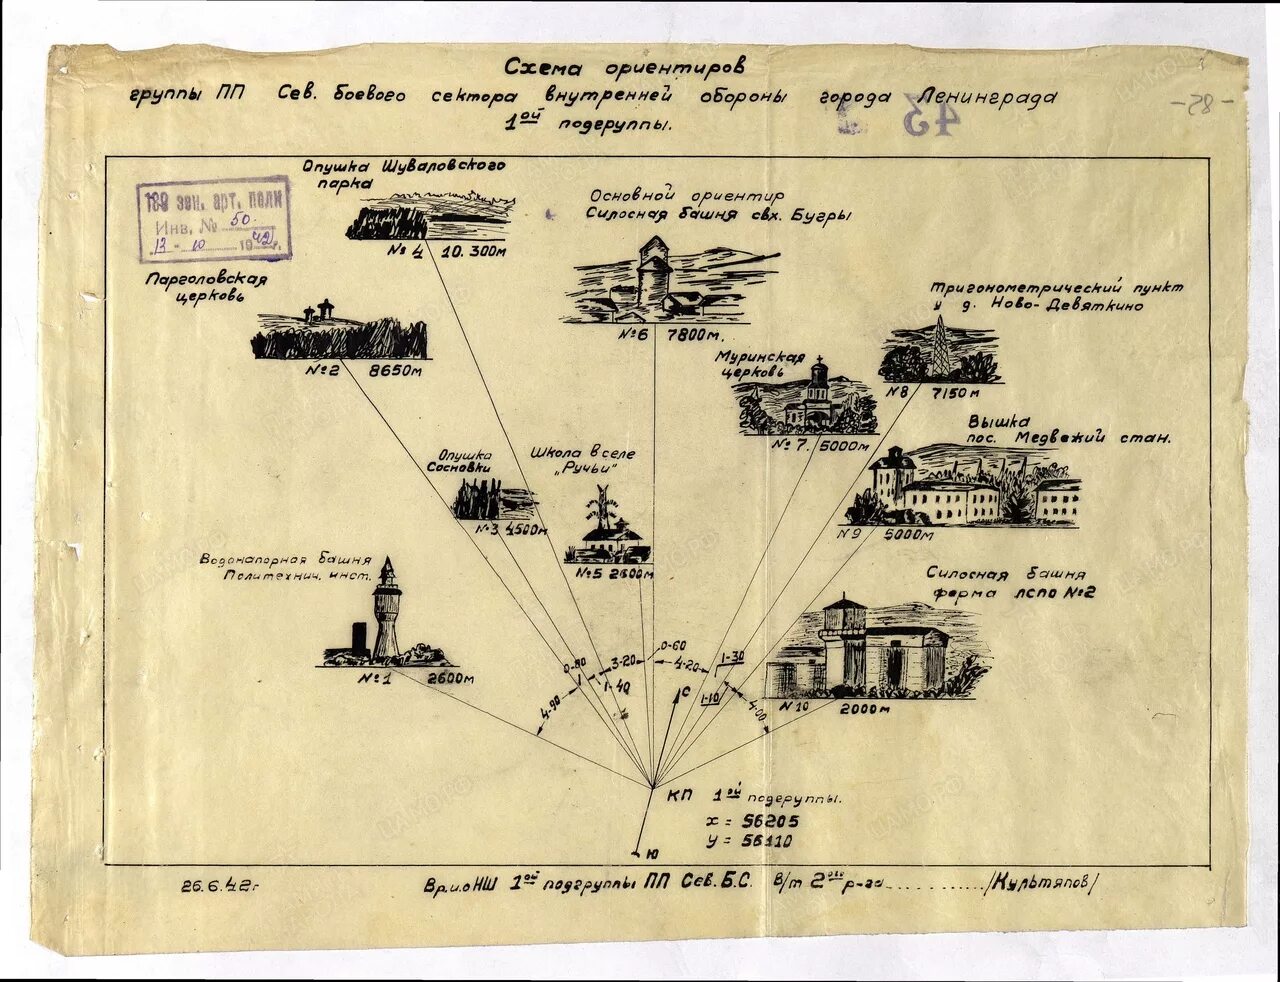 Схема ориентиров
группы ПП Сев. боевого сектора внутренней обороны города Ленинграда
1ой подгруппы.
-28-
43
189 зен. арт. полк
Инв. № 50.
13 - 10 1942 г.
Опушка Шуваловского
парка
№ 4 10.300м
Основной ориентир
Силосная башня свх. Бугры
№6 7800м.
Парголовская
церковь
№2 8650м
Тригонометрический пункт
у д. Ново-Девяткино
№8 7150м
Муринская
церковь
№ 7. 5000м
Вышка
пос. Медвежий стан.
№9 5000м
Опушка
Сосновки
№3 4500м
Школа в селе
„Ручьи"
№5 2600м
Водонапорная башня
Политехнич. инст.
№1 2600м
Силосная башня
ферма ЛСПО №2
№10 2000м
4-90
0-80
1-40
3-20
0-60
4-20
1-30
1-10
4-00
С
КП 1ой подгруппы.
х = 56205
у = 56110
Ю
26.6.42г
Вр.и.о НШ 1ой подгруппы ПП Сев. Б.С. В/т 2ого р-га............/Культяпов/